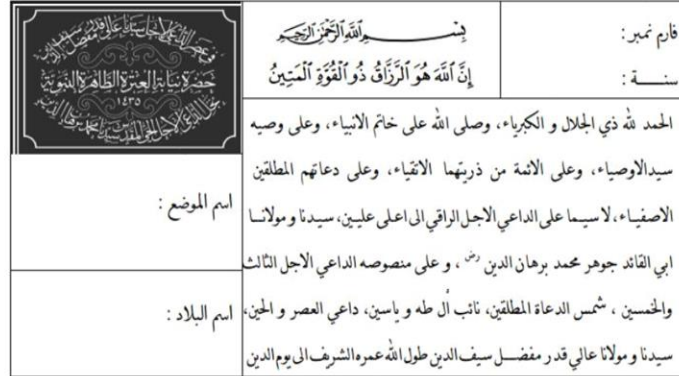 فارم نمبر :
سنــــة :
بِسْــــمِ ٱللَّهِ ٱلرَّحْمَٰنِ ٱلرَّحِيمِ
إِنَّ ٱللَّهَ هُوَ ٱلرَّزَّاقُ ذُو ٱلْقُوَّةِ ٱلْمَتِينُ
حضرة نيابة العترة الطاهرة النبوية
١٤٣٥
الحمد لله ذي الجلال و الكبرياء، وصلى الله على خاتم الانبياء، وعلى وصيه
سيدالاوصياء، وعلى الائمة من ذريتهما الاتقياء، وعلى دعاتهم المطلقين
الاصفياء، لاسيما على الداعي الاجل الراقي الى اعلى عليين، سيدنا و مولانا
ابي القائد جوهر محمد برهان الدين رض ، و على منصوصه الداعي الاجل الثالث
والخمسين ، شمس الدعاة المطلقين، نائب أل طه و ياسين، داعي العصر و الحين،
سيدنا و مولانا عالي قدر مفضــل سيف الدين طول الله عمره الشريف الى يوم الدين
اسم الموضع :
اسم البلاد :